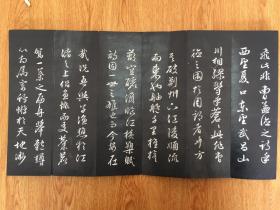 飛此非曹孟德之詩乎
西望夏口東望武昌山
川相繆鬱乎蒼蒼此非孟
德之困於周郎者乎方
其破荊州下江陵順流
而東也舳艫千里旌旗
蔽空釃酒臨江橫槊賦
詩固一世之雄也而今安在
哉況吾與子漁樵於江
渚之上侶魚蝦而友麋鹿
駕一葉之扁舟舉匏樽
以相屬寄蜉蝣於天地渺